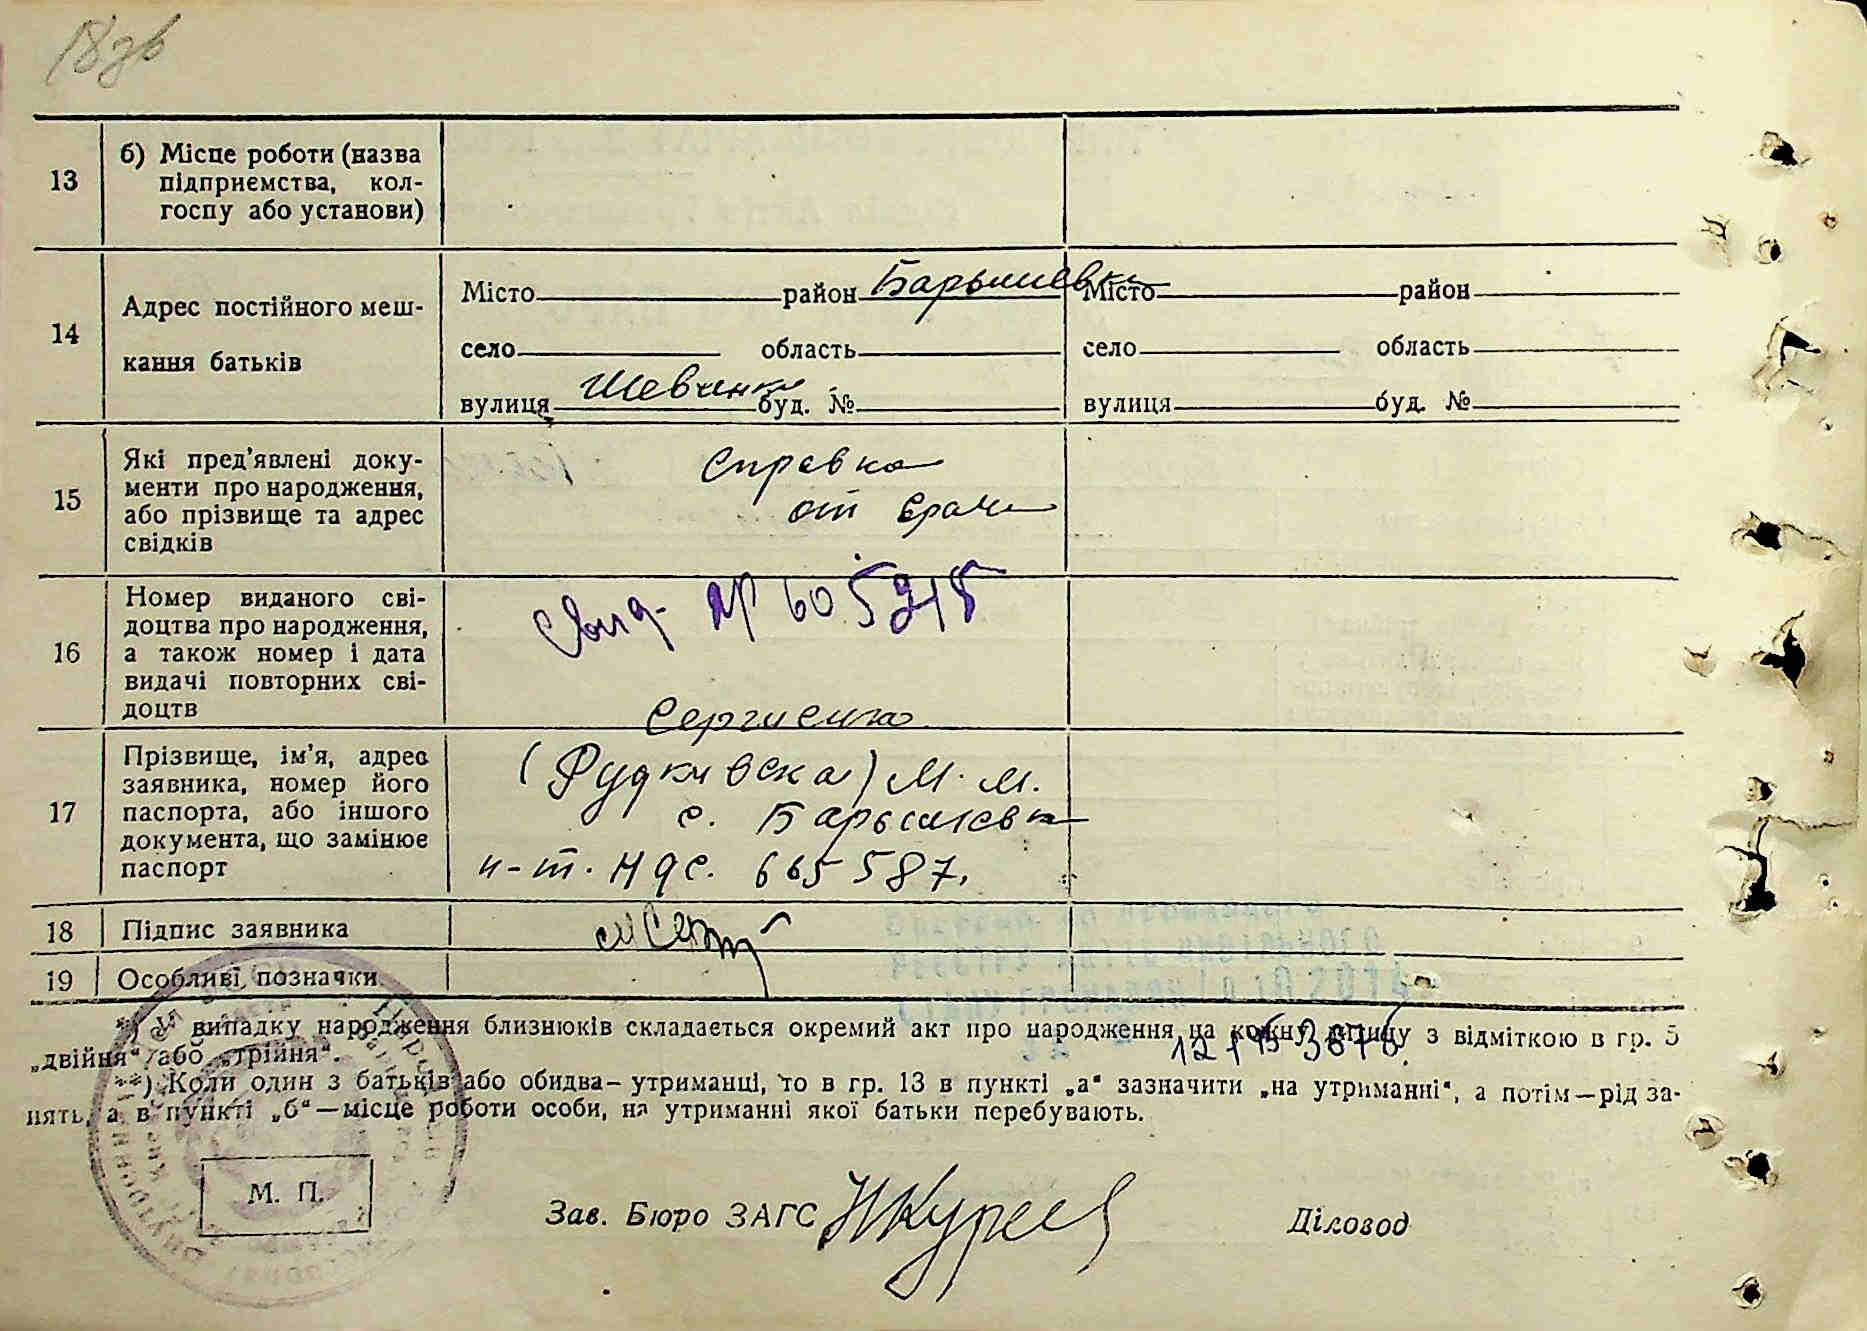 18зв
13
б) Місце роботи (назва
підприємства, кол-
госпу або установи)
14
Адрес постійного меш-
кання батьків
Місто район Барышевка
село область
вулиця Шевчинки буд. №
Місто район
село область
вулиця буд. №
15
Які пред'явлені доку-
менти про народження,
або прізвище та адрес
свідків
Справка
от врача
16
Номер виданого сві-
доцтва про народження,
а також номер і дата
видачі повторних сві-
доцтв
Свид.
17
Прізвище, ім'я, адрес
заявника, номер його
паспорта, або іншого
документа, що замінює
паспорт
Сергиенко
(Рудкивска) М. М.
с. Барышевка
665587.
18
Підпис заявника
19
Особливі позначки
*) У випадку народження близнюків складається окремий акт про народження на кожну дитину з відміткою в гр. 5
„двійня“ або „трійня“.
**) Коли один з батьків або обидва—утриманці, то в гр. 13 в пункті „а“ зазначити „на утриманні“, а потім—рід за-
нять, а в пункті „б“—місце роботи особи, на утриманні якої батьки перебувають.
М. П.
Зав. Бюро ЗАГС
Діловод